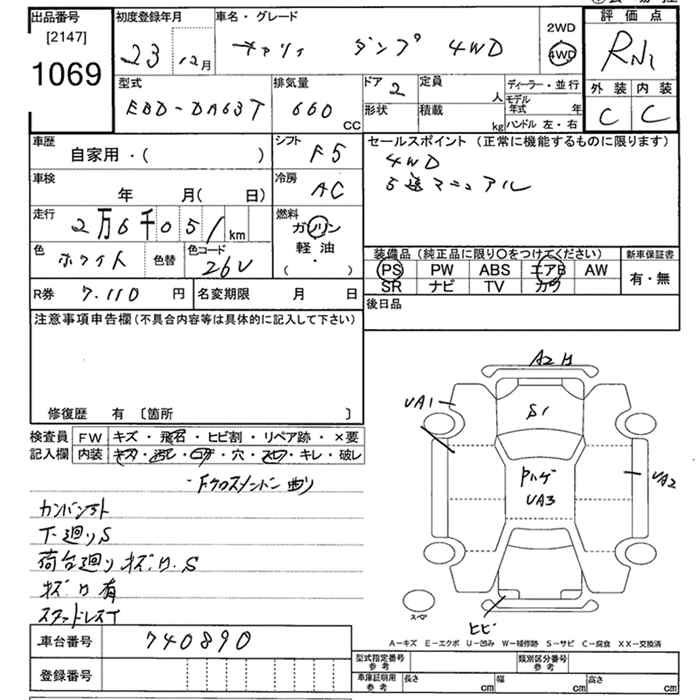 出品番号
[2147]
1069
初度登録年月
23 12月
車名・グレード
キャリィ ダンプ 4WD
2WD
4WD
評価点
RA1
外装 内装
C C
型式
EBD-DA63T
排気量
660 CC
ドア 2
定員 人
形状
積載 kg
ディーラー・並行
モデル年式 年
ハンドル 左・右
車歴
自家用・( )
シフト
F5
セールスポイント (正常に機能するものに限ります)
4WD
5速マニュアル
車検
年 月( 日)
冷房
AC
走行
2万6千051km
燃料
ガソリン
軽油
( ・ )
色
ホワイト
色替
色コード
26U
装備品(純正品に限り○をつけてください)
PS PW ABS エアB AW
SR ナビ TV カワ
新車保証書
有・無
R券 7.110 円
名変期限 月 日
後日品
注意事項申告欄(不具合内容等は具体的に記入して下さい)
修復歴 有 〔箇所 〕
検査員記入欄
FW キズ・飛石・ヒビ割・リペア跡・×要
内装 キズ・汚レ・ハゲ・穴・スレ・キレ・破レ
・Fクロスメンバー曲り
下廻りS
荷台廻りキズ凹、S
キズ凹有
スタッドレスT
A2凹
UA1
S1
Pハゲ
UA3
UA2
ヒビ
スペア
A-キズ E-エクボ U-凹み W-補修跡 S-サビ C-腐食 XX-交換済
車台番号 740890
登録番号
型式指定番号 参考
類別区分番号 参考
車庫証明用 参考
長さ cm
幅 cm
高さ cm